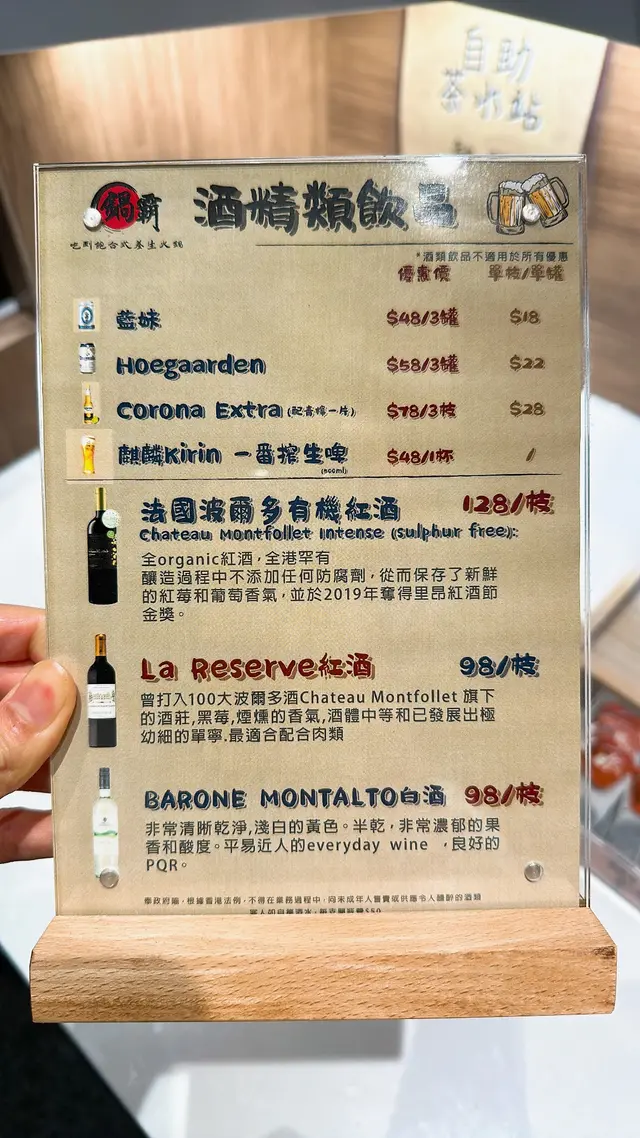 自助
茶水站
鍋霸
吃到飽台式養生火鍋
酒精類飲品
*酒類飲品不適用於所有優惠
優惠價 單枝/單罐
藍妹 $48/3罐 $18
Hoegaarden $58/3罐 $22
Corona Extra (配青檸一片) $78/3枝 $28
麒麟Kirin 一番搾生啤 (500ml) $48/1杯 /
法國波爾多有機紅酒 128/枝
Chateau Montfollet Intense (sulphur free):
全organic紅酒,全港罕有
釀造過程中不添加任何防腐劑,從而保存了新鮮
的紅莓和葡萄香氣,並於2019年奪得里昂紅酒節
金獎。
La Reserve紅酒 98/枝
曾打入100大波爾多酒Chateau Montfollet 旗下
的酒莊,黑莓,煙燻的香氣,酒體中等和已發展出極
幼細的單寧.最適合配合肉類
BARONE MONTALTO白酒 98/枝
非常清晰乾淨,淺白的黃色。半乾,非常濃郁的果
香和酸度。平易近人的everyday wine ,良好的
PQR。
奉政府諭,根據香港法例,不得在業務過程中,向未成年人售賣或供應令人醺醉的酒類